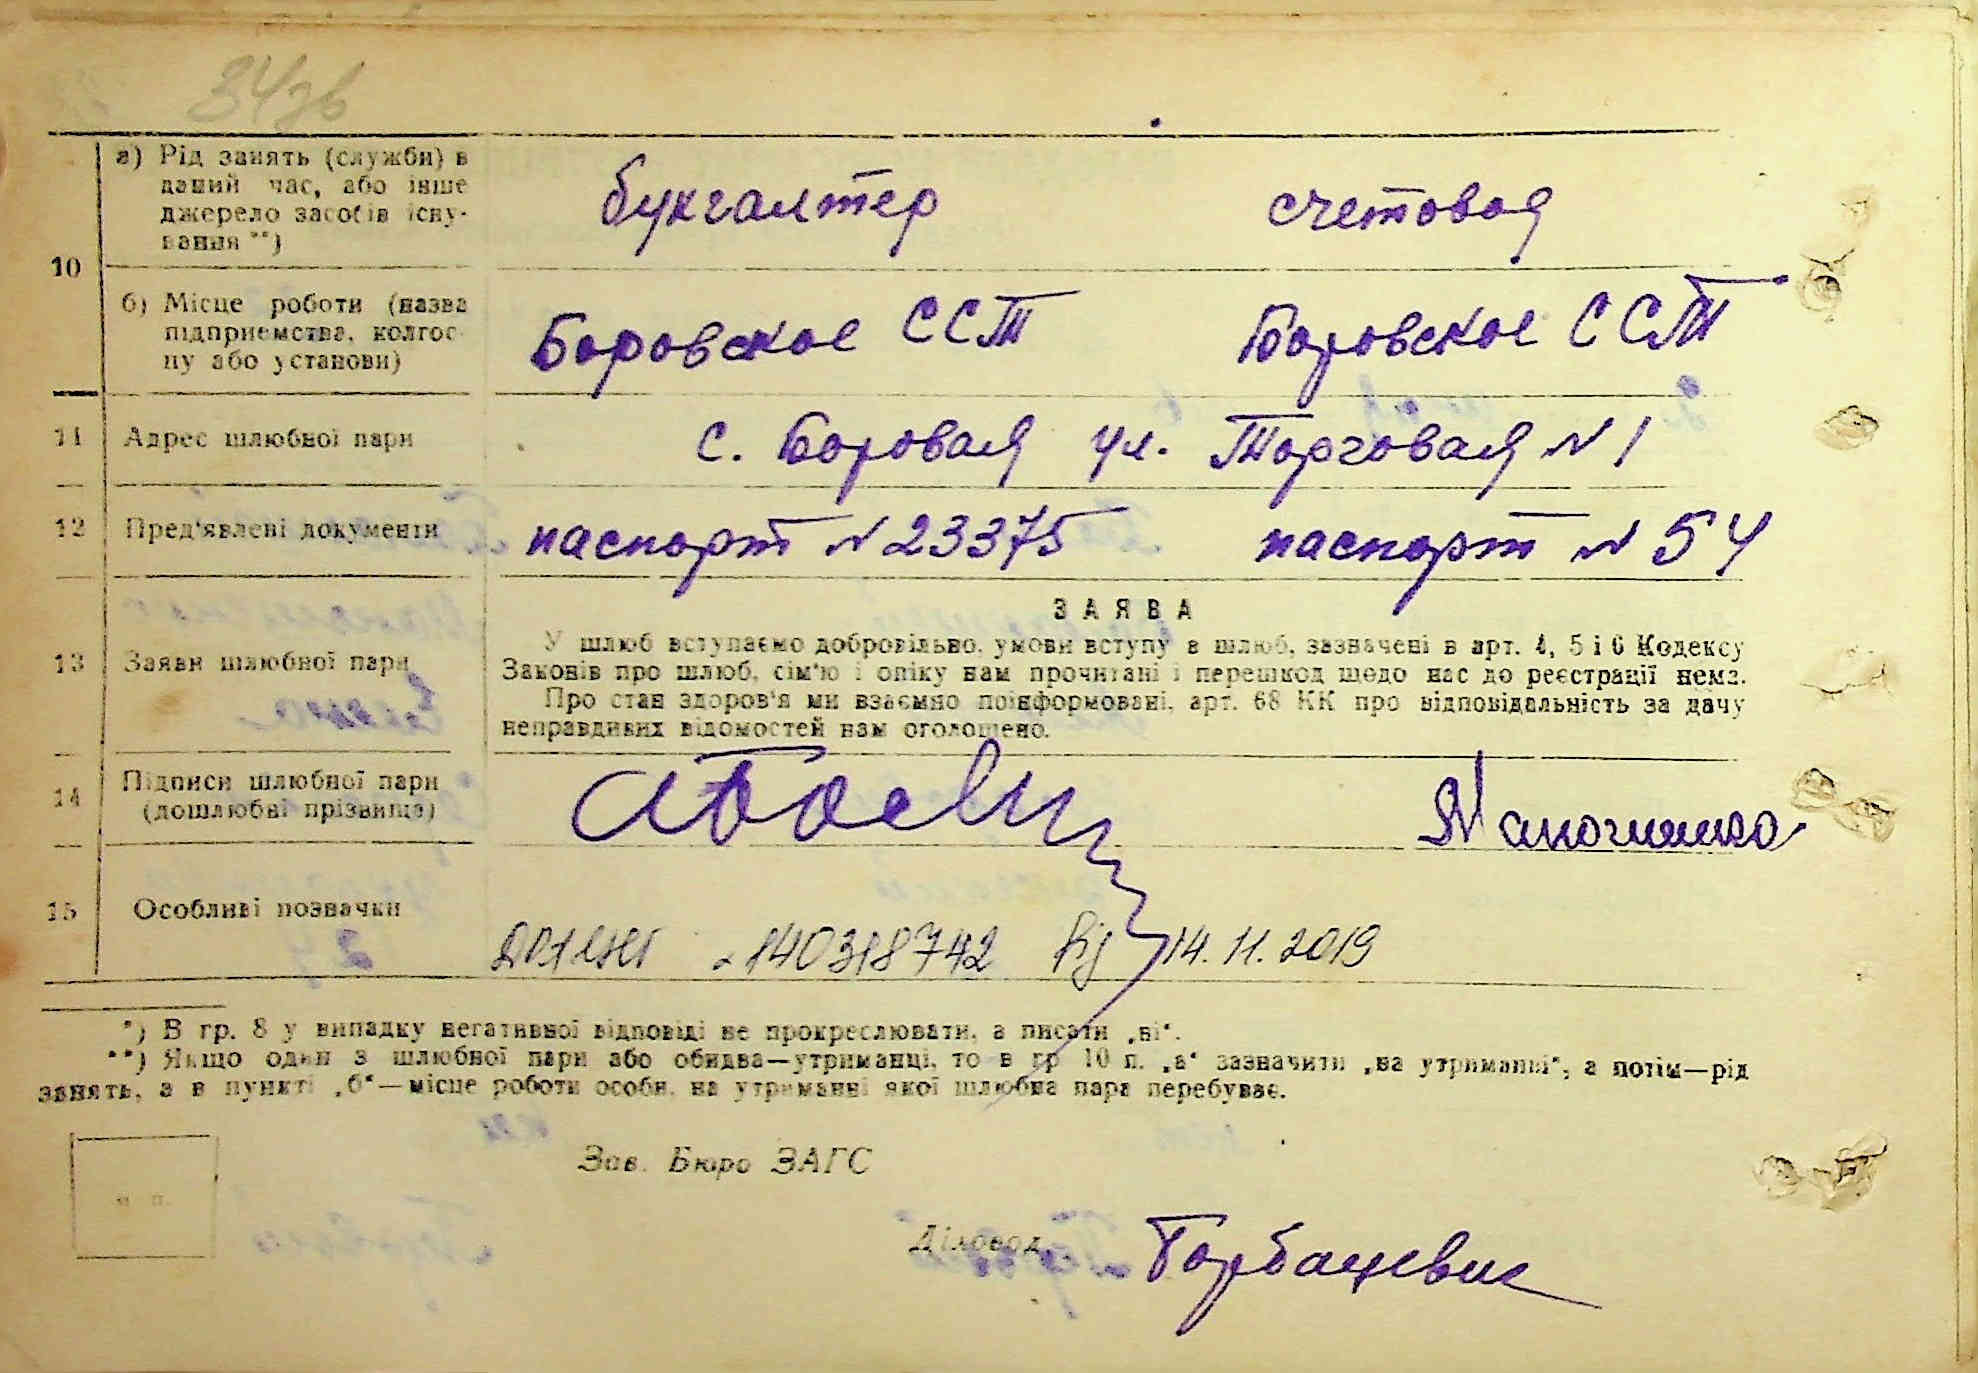 34зв
а) Рід занять (служби) в
даний час, або інше
джерело засобів існу-
вання **)
бухгалтер счетовод
10
б) Місце роботи (назва
підприємства, колгос-
пу або установи)
Боровское ССТ Боровское ССТ
11 Адрес шлюбної пари с. Боровая ул. Торговая N 1
12 Пред'явлені документи паспорт N 23375 паспорт N 54
ЗАЯВА
13 Заяви шлюбної пари
У шлюб вступаємо добровільно, умови вступу в шлюб, зазначені в арт. 4, 5 і 6 Кодексу
Законів про шлюб, сім'ю і опіку нам прочитані і перешкод щодо нас до реєстрації нема.
Про стан здоров'я ми взаємно поінформовані, арт. 68 КК про відповідальність за дачу
неправдивих відомостей нам оголошено.
14 Підписи шлюбної пари
(дошлюбні прізвища)
15 Особливі позначки
140318742 від 14.11.2019
*) В гр. 8 у випадку негативної відповіді не прокреслювати, а писати „ні“.
**) Якщо один з шлюбної пари або обидва—утриманці, то в гр 10 п. „а“ зазначити „на утриманні“, а потім—рід
занять, а в пункті „б“—місце роботи особи, на утриманні якої шлюбна пара перебуває.
м п.
Зав. Бюро ЗАГС
Діловод Горбацевич